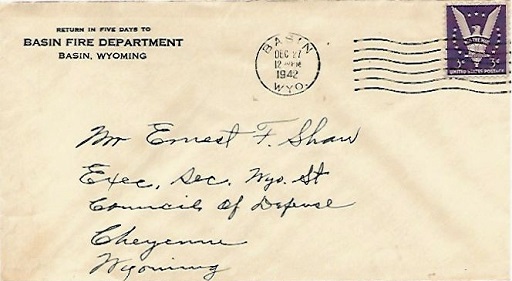 RETURN IN FIVE DAYS TO
BASIN FIRE DEPARTMENT
BASIN, WYOMING
BASIN
DEC 27
12
1942
WYO.
WIN THE WAR
3¢ 3¢
UNITED STATES POSTAGE
Mr Ernest F. Shaw
Exec. Sec. Wyo. St
Councils Of Defense
Cheyenne
Wyoming